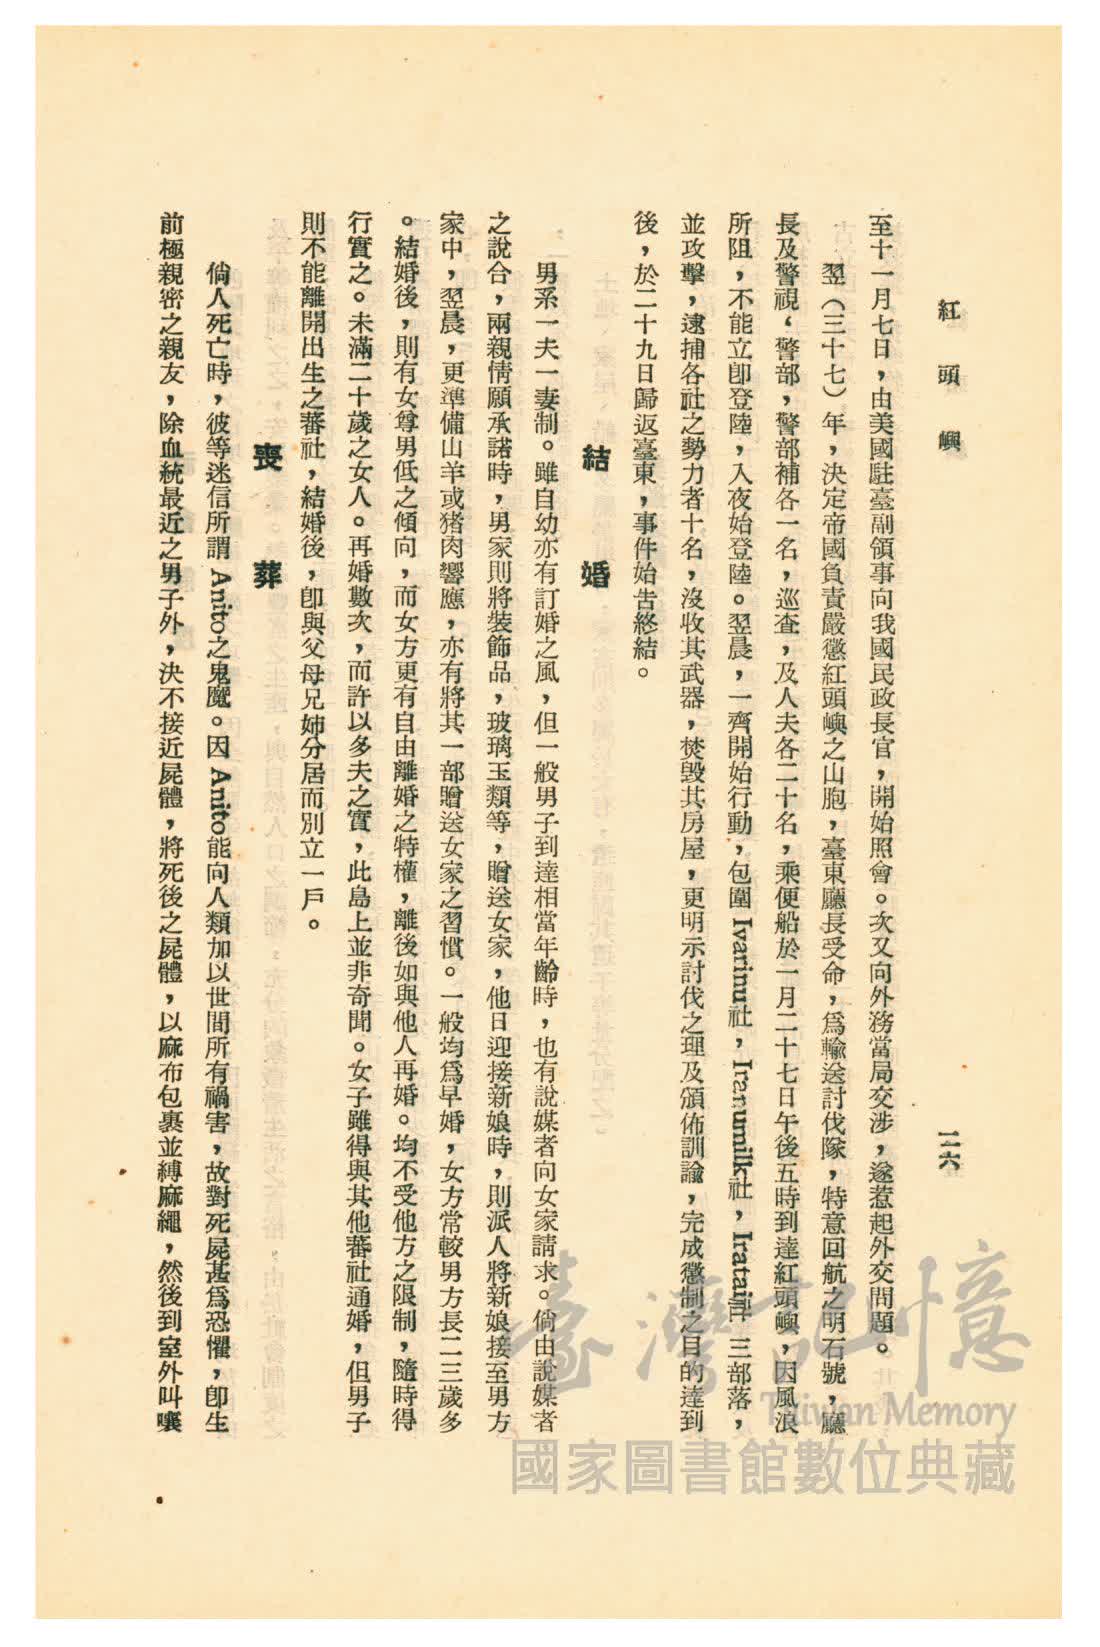 紅頭嶼
二六
至十一月七日，由美國駐臺副領事向我國民政長官，開始照會。次又向外務當局交涉，遂惹起外交問題。
翌（三十七）年，決定帝國負責嚴懲紅頭嶼之山胞，臺東廳長受命，爲輸送討伐隊，特意回航之明石號，廳
長及警視，警部，警部補各一名，巡查，及人夫各二十名，乘便船於一月二十七日午後五時到達紅頭嶼，因風浪
所阻，不能立卽登陸，入夜始登陸。翌晨，一齊開始行動，包圍Ivarinu社，Iranumilk社，Iratai社 三部落，
並攻擊，逮捕各社之勢力者十名，沒收其武器，焚毀其房屋，更明示討伐之理及頒佈訓諭，完成懲制之目的達到
後，於二十九日歸返臺東，事件始告終結。
結婚
男系一夫一妻制。雖自幼亦有訂婚之風，但一般男子到達相當年齡時，也有說媒者向女家請求。倘由說媒者
之說合，兩親情願承諾時，男家則將裝飾品，玻璃玉類等，贈送女家，他日迎接新娘時，則派人將新娘接至男方
家中，翌晨，更準備山羊或猪肉響應，亦有將其一部贈送女家之習慣。一般均爲早婚，女方常較男方長二三歲多
。結婚後，則有女尊男低之傾向，而女方更有自由離婚之特權，離後如與他人再婚。均不受他方之限制，隨時得
行實之。未滿二十歲之女人。再婚數次，而許以多夫之實，此島上並非奇聞。女子雖得與其他蕃社通婚，但男子
則不能離開出生之蕃社，結婚後，卽與父母兄姉分居而別立一戶。
喪葬
倘人死亡時，彼等迷信所謂Anito之鬼魔。因Anito能向人類加以世間所有禍害，故對死屍甚爲恐懼，卽生
前極親密之親友，除血統最近之男子外，決不接近屍體，將死後之屍體，以麻布包裹並縛麻繩，然後到室外叫嚷
臺灣記憶
Taiwan Memory
國家圖書館數位典藏